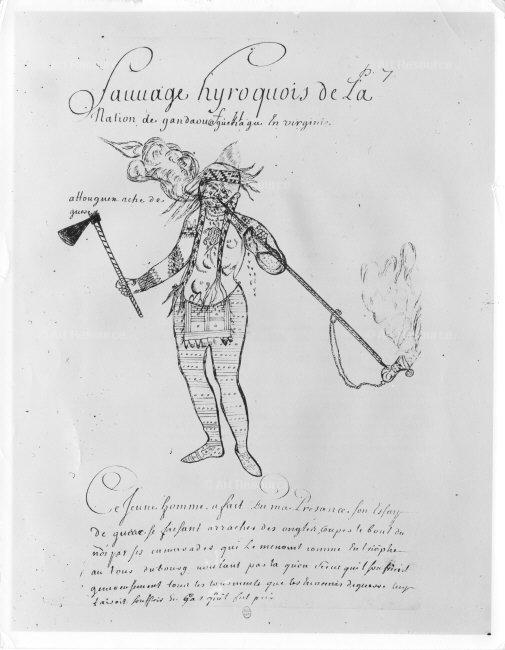 p. 7
Sauuage hyroquois de La
Nation de gandaouaguehaga En virginie.
attouguen ache de
guerre
Ce Jeune homme a fait En ma Presance son Essay
de guerre se faisant arracher des ongles couper le bout du
nés par ses camarades qui Le menoint comme En triophe
au tour du bourg voulant par la
tous les tourments que les
faisoit souffrir En cas quil fut pris